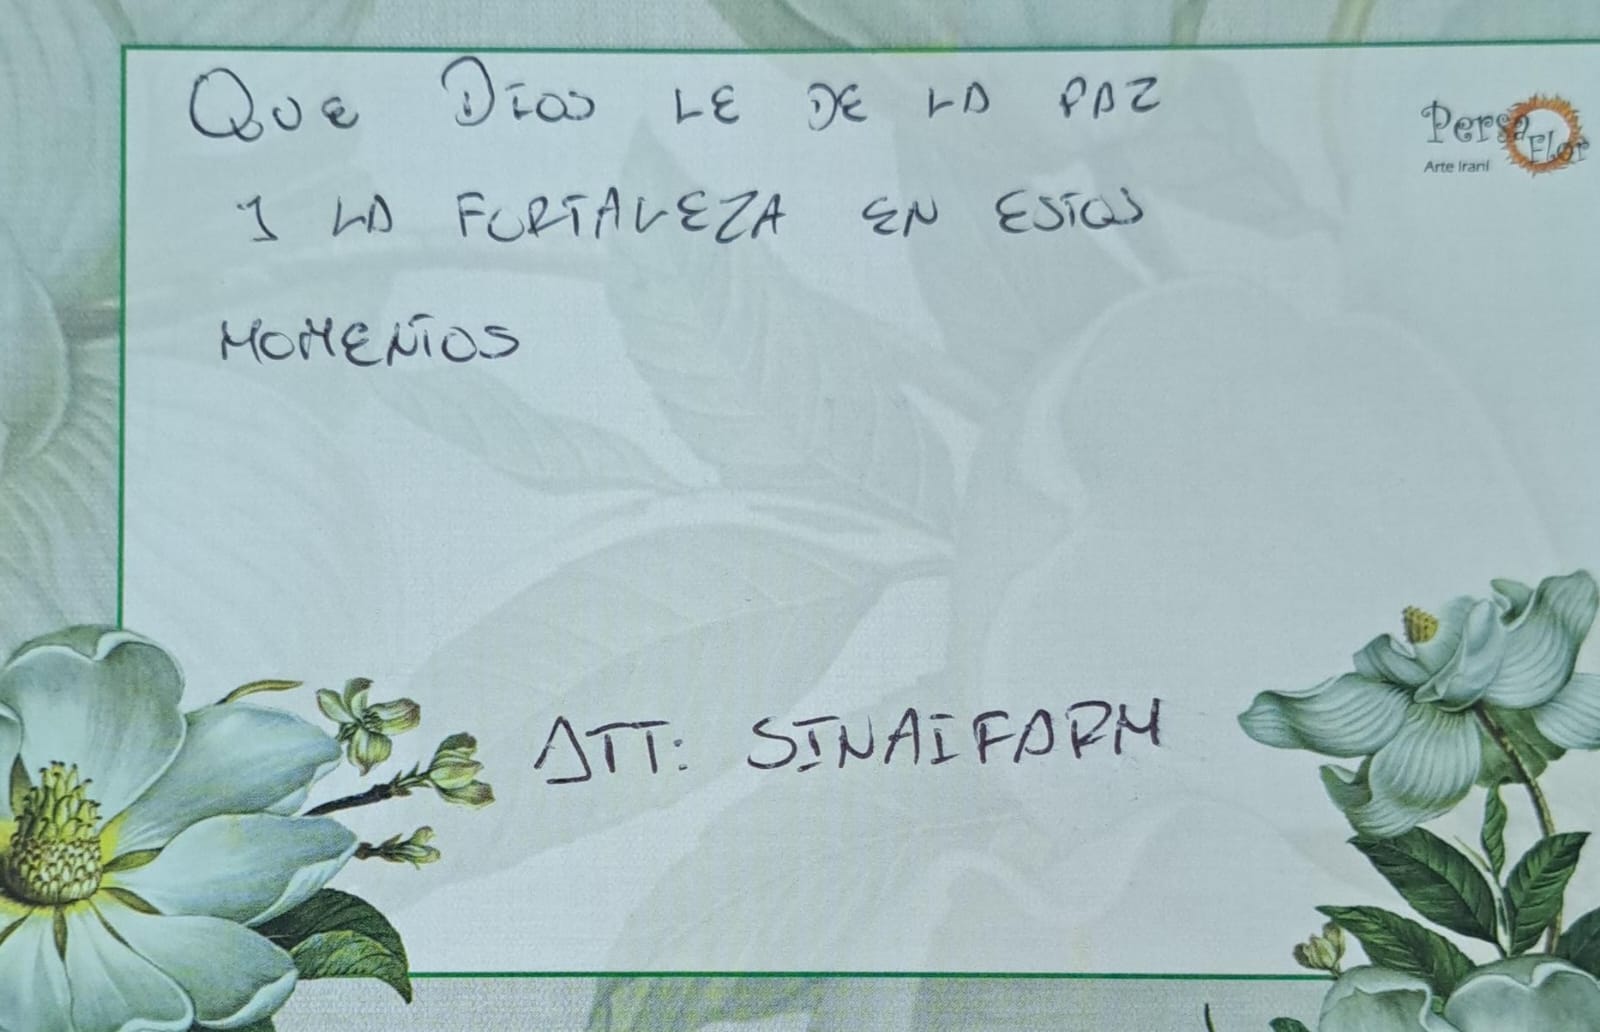 QUE DIOS LE DE LA PAZ
Y LA FORTALEZA EN ESTOS
MOMENTOS
ATT: SINAIFARM
Persa Flor
Arte Iraní